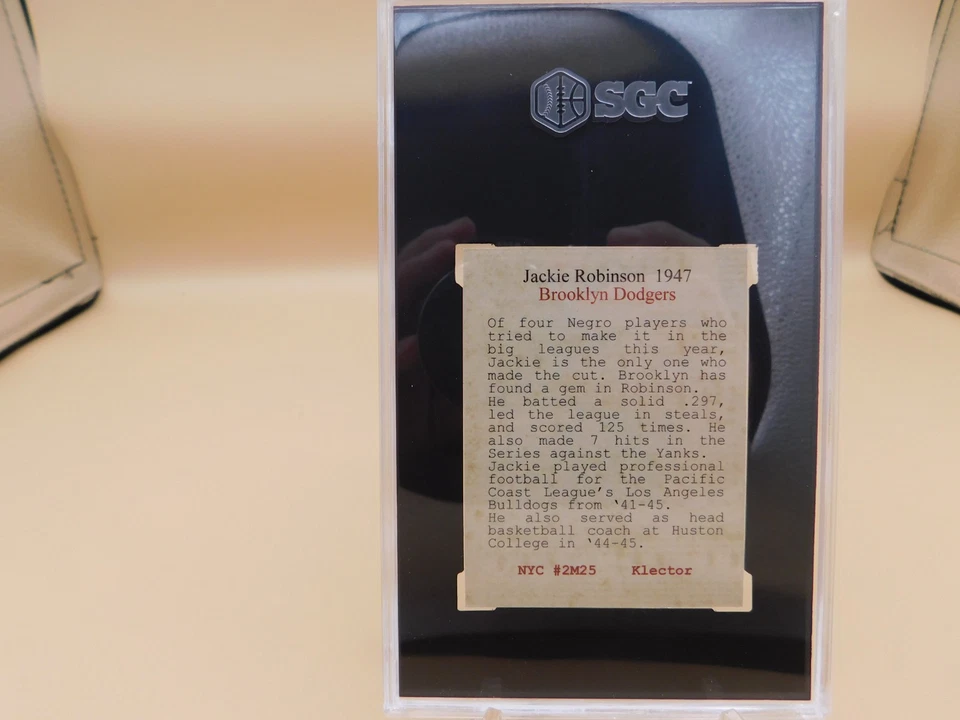 SGC
Jackie Robinson 1947
Brooklyn Dodgers
Of four Negro players who
tried to make it in the
big leagues this year,
Jackie is the only one who
made the cut. Brooklyn has
found a gem in Robinson.
He batted a solid .297,
led the league in steals,
and scored 125 times. He
also made 7 hits in the
Series against the Yanks.
Jackie played professional
football for the Pacific
Coast League's Los Angeles
Bulldogs from '41-45.
He also served as head
basketball coach at Huston
College in '44-45.
NYC #2M25 Klector